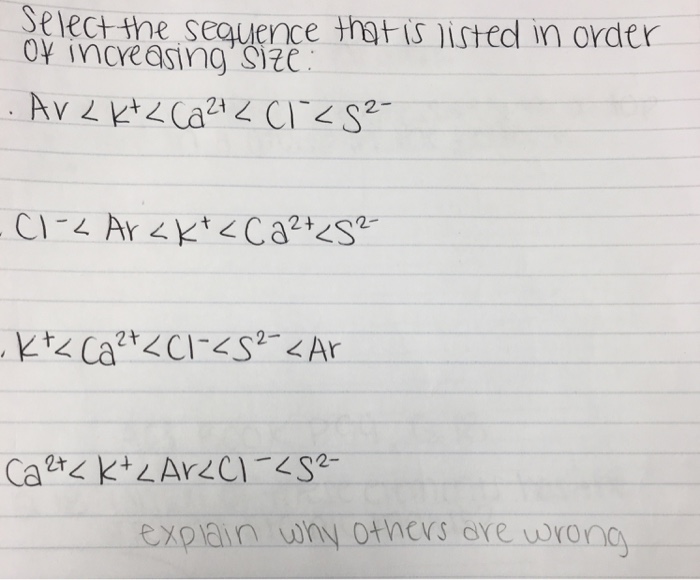 Select the sequence that is listed in order
of increasing size:
. Ar < K⁺ < Ca²⁺ < Cl⁻ < S²⁻
. Cl⁻ < Ar < K⁺ < Ca²⁺ < S²⁻
. K⁺ < Ca²⁺ < Cl⁻ < S²⁻ < Ar
Ca²⁺ < K⁺ < Ar < Cl⁻ < S²⁻
explain why others are wrong